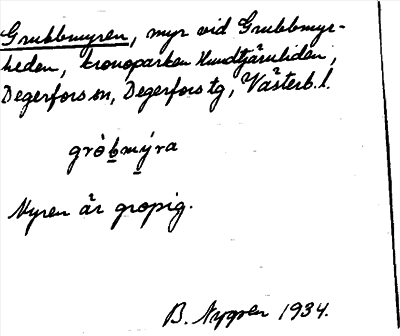 Grubbmyren, myr vid Grubbmyr-
heden, kronoparken Hundtjärnliden,
Degerfors sn, Degerfors tg, Västerb. l.
gròb̲m̲ýra
Myren är gropig.
B. Nygren 1934.